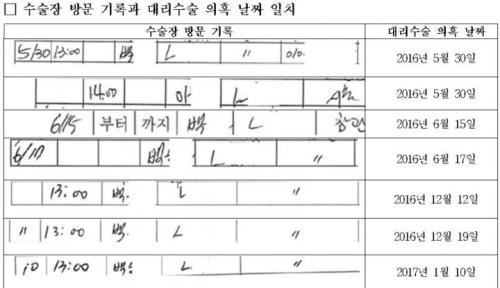 □ 수술장 방문 기록과 대리수술 의혹 날짜 일치
수술장 방문 기록 대리수술 의혹 날짜
5/30 13:00 백 L 〃 2016년 5월 30일
14:00 L 2016년 5월 30일
6/15 부터 까지 백 L 참관 2016년 6월 15일
6/17 L 〃 2016년 6월 17일
13:00 백 L 〃 2016년 12월 12일
〃 13:00 백 L 〃 2016년 12월 19일
10 13:00 L 〃 2017년 1월 10일